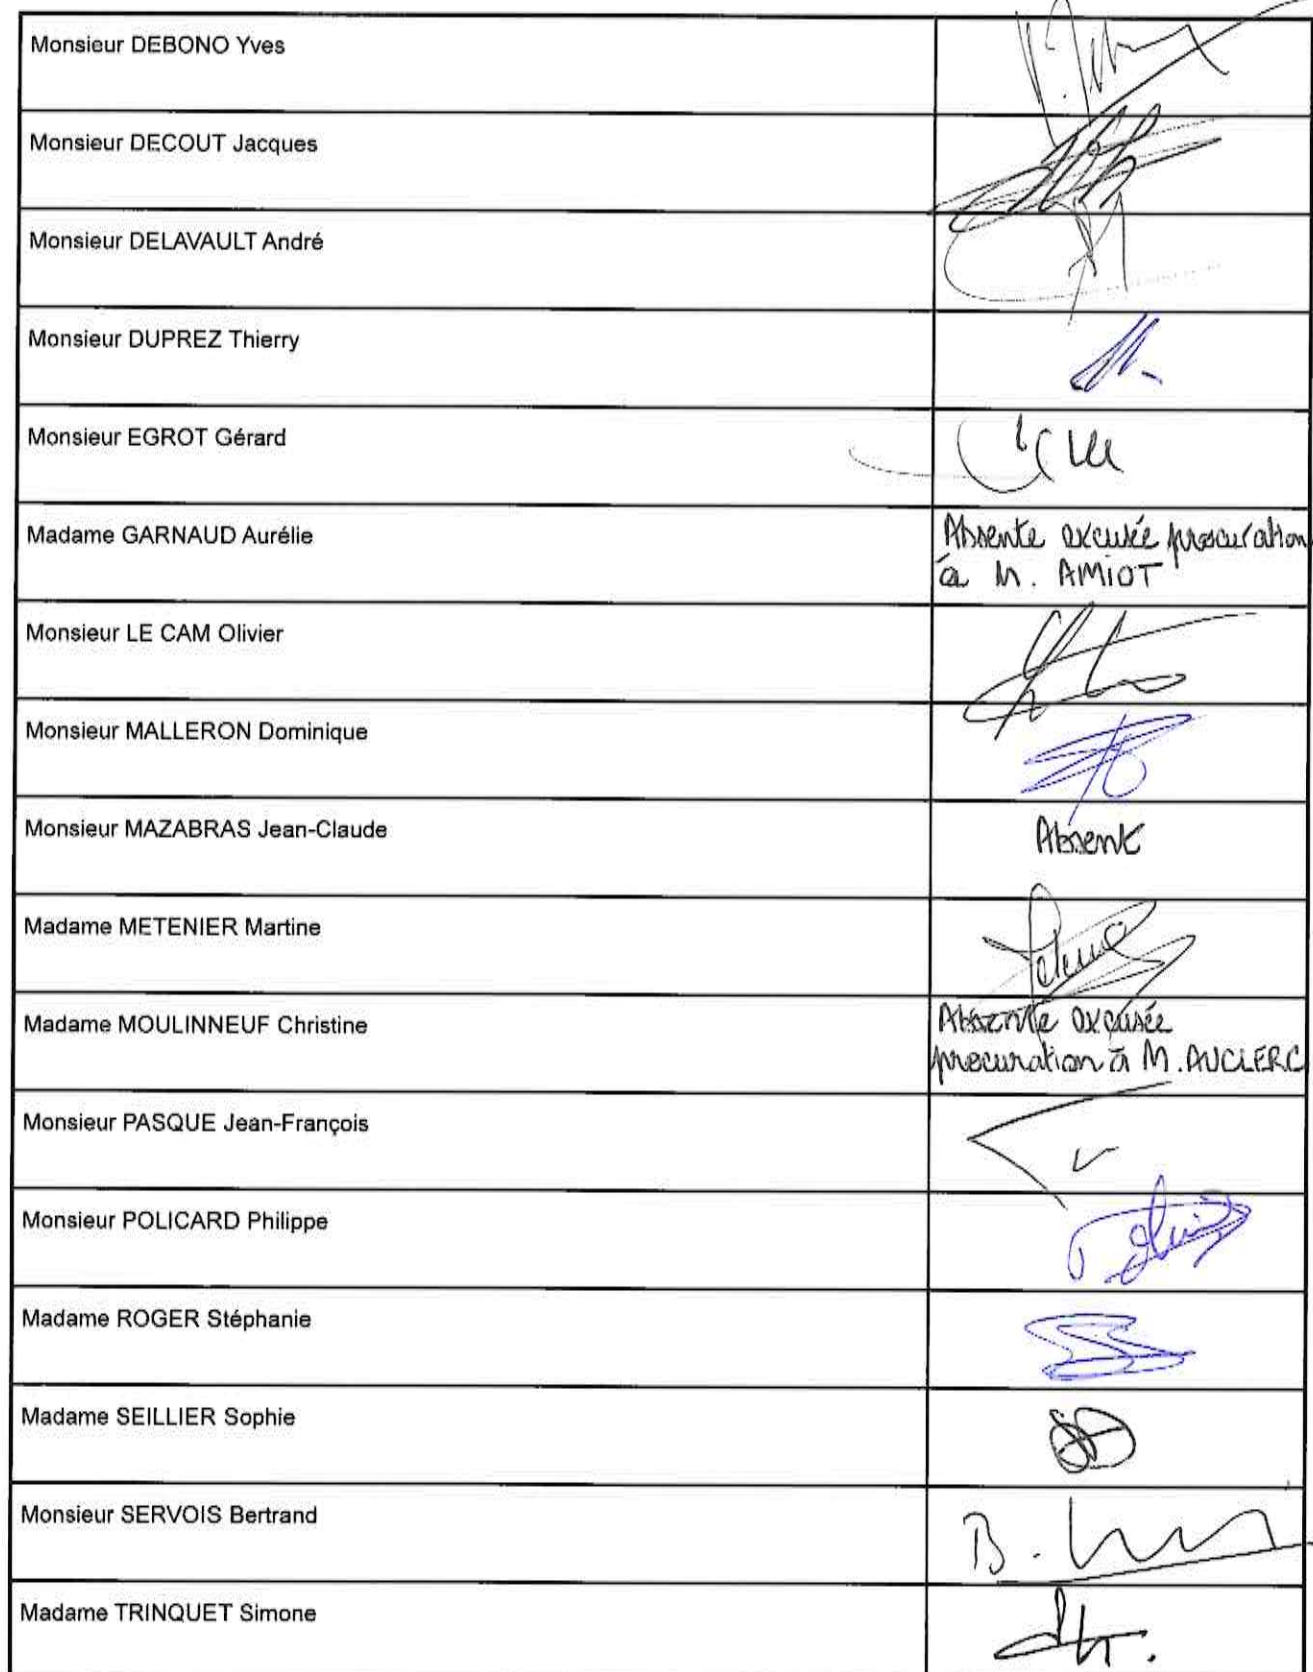 Monsieur DEBONO Yves
Monsieur DECOUT Jacques
Monsieur DELAVAULT André
Monsieur DUPREZ Thierry
Monsieur EGROT Gérard
Madame GARNAUD Aurélie
Absente excusée procuration
à M. AMIOT
Monsieur LE CAM Olivier
Monsieur MALLERON Dominique
Monsieur MAZABRAS Jean-Claude
Absent
Madame METENIER Martine
Madame MOULINNEUF Christine
Absente excusée
procuration à M. AUCLERC
Monsieur PASQUE Jean-François
Monsieur POLICARD Philippe
Madame ROGER Stéphanie
Madame SEILLIER Sophie
Monsieur SERVOIS Bertrand
B.
Madame TRINQUET Simone